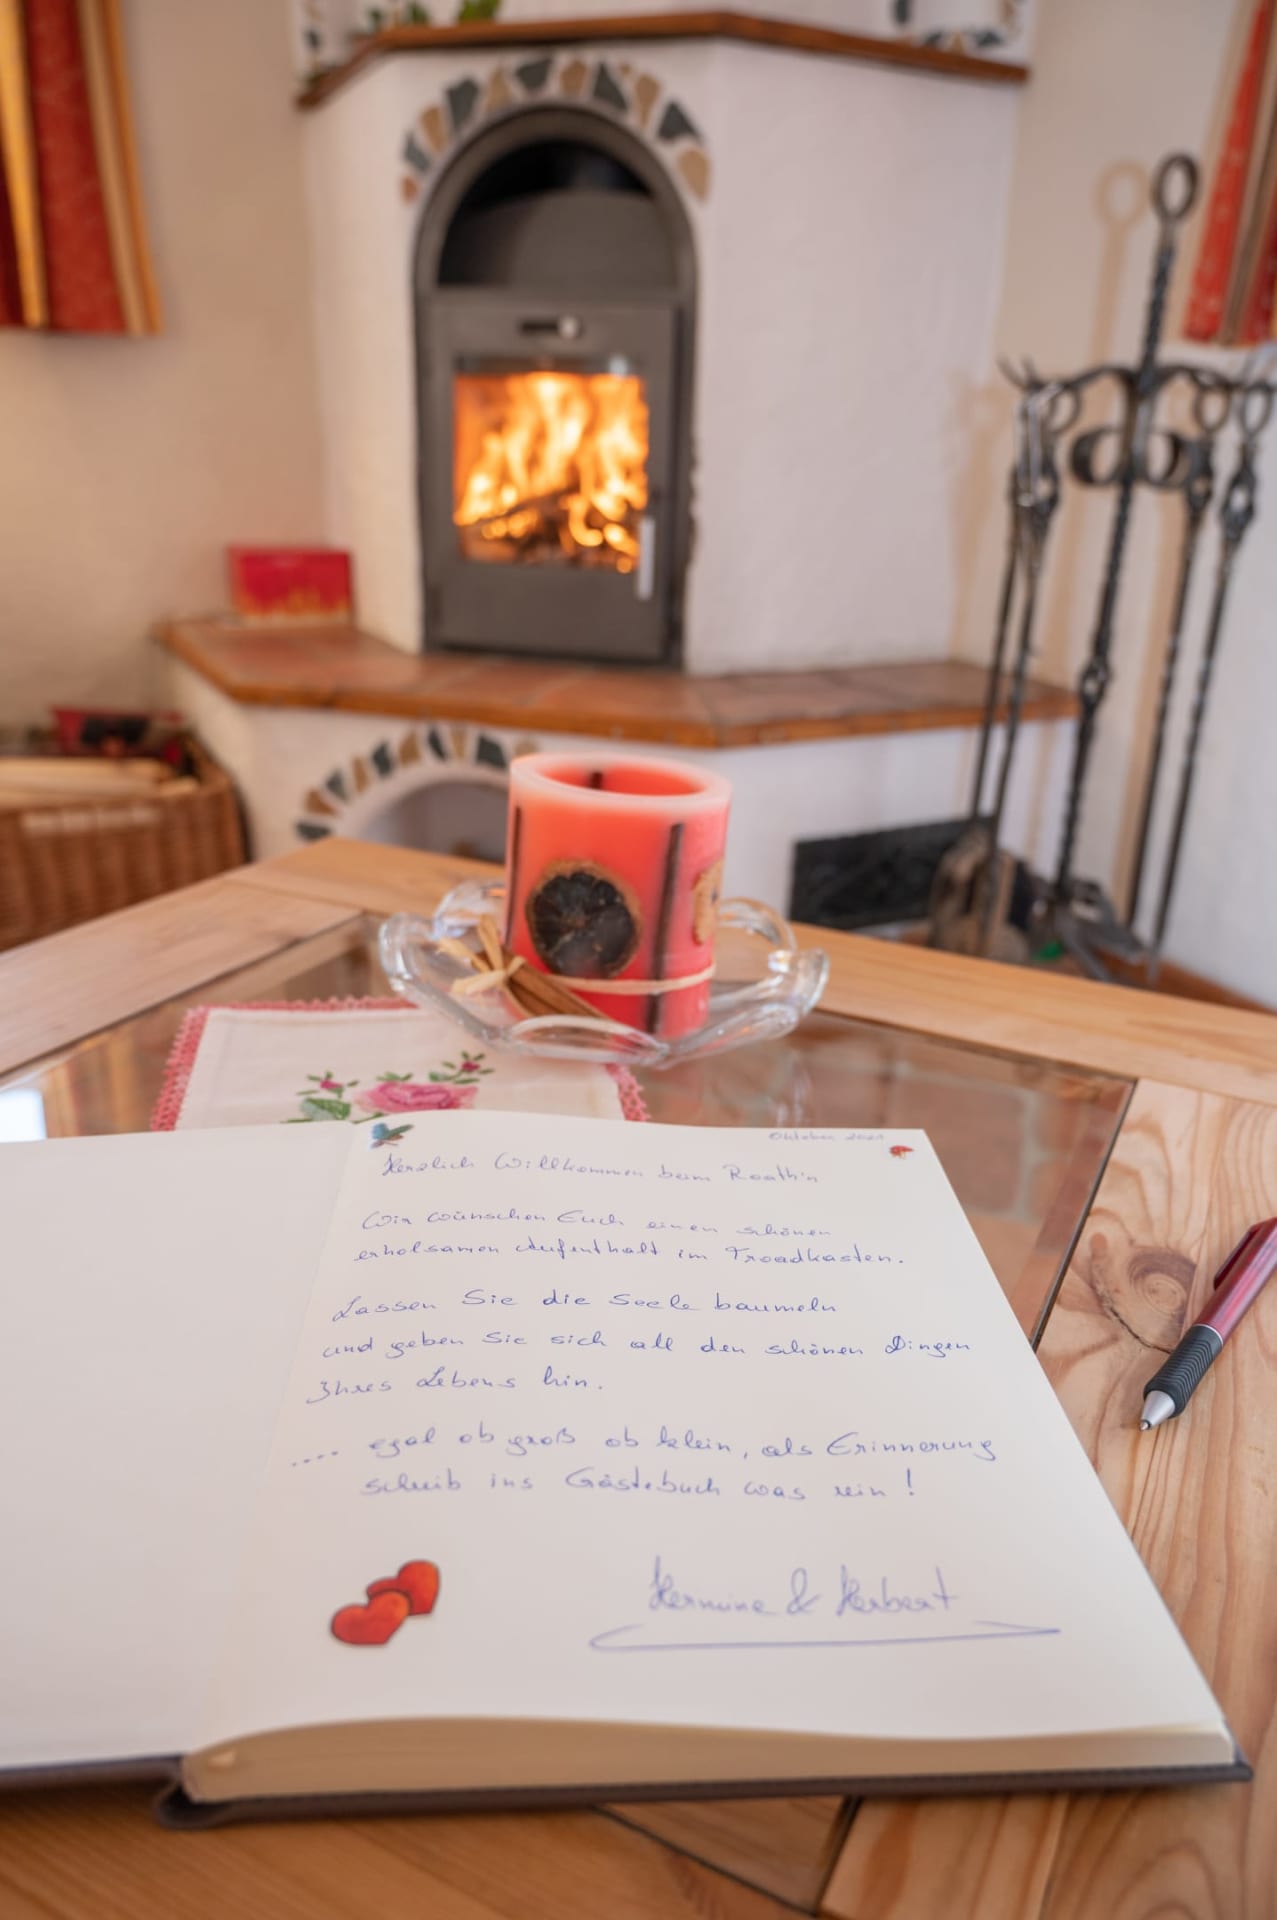 Oktober 2021
Herzlich Willkommen beim Roath'n
Wir wünschen Euch einen schönen
erholsamen Aufenthalt im Troadkasten.
Lassen Sie die Seele baumeln
und geben Sie sich all den schönen Dingen
Ihres Lebens hin.
.... egal ob groß ob klein, als Erinnerung
schreib ins Gästebuch was rein!
Hermine & Herbert